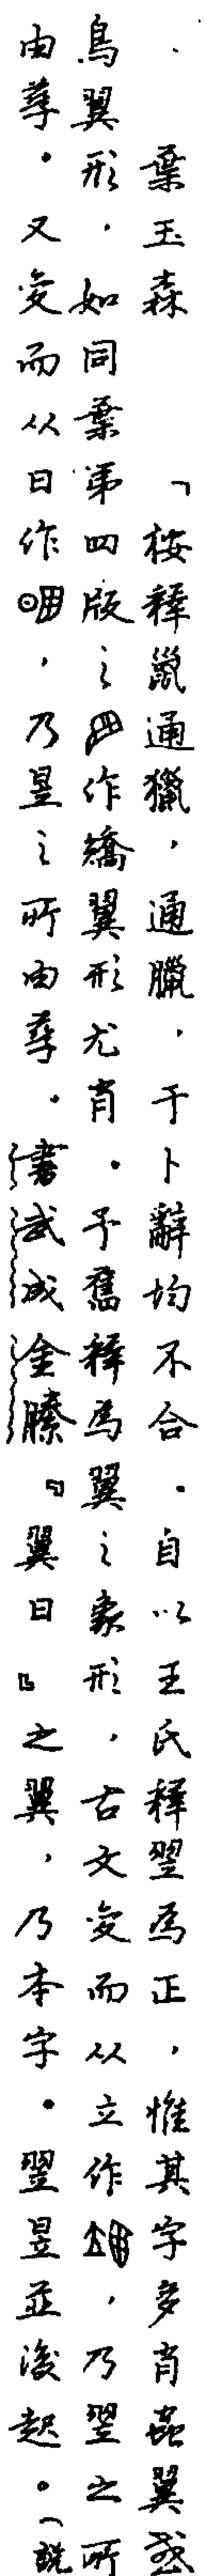 葉玉森 「桉釋鼠通獵，通臘，于卜辭均不合。自以王氏釋翌為正，惟其字多肖蟲翼或
鳥翼形，如同葉第四版之作矯翼形尤肖。予舊釋為翼之象形，古文變而从立作，乃翌之所
由孳。又變而从日作，乃昱之所由孳。書武成金縢『翼日』之翼，乃本字。翌昱並後起。（說